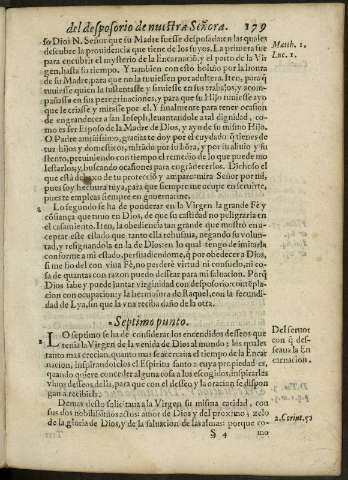 del desposorio de nuestra Señora. 179
so Dios N. Señor que su Madre fuesse desposada: en las quales
descubre la prouidencia que tiene de los suyos. La primera fue
para encubrir el mysterio de la Encarnaciõ, y el parto de la Vir-
gen, hasta su tiempo. Y tambien con esto boluio por la honra
de su Madre, para que no la tuuiessen por adultera. Iten, para q̃
tuuiesse quien la sustentasse y siruiesse en sus trabajos, y acom-
pañasse en sus peregrinaciones, y para que su Hijo tuuiesse ayo
que le criasse y mirasse por el. Y finalmente para tener ocasion
de engrandecer a san Ioseph, leuantandole a tal dignidad, co-
mo es ser Esposo de la Madre de Dios, y ayo de su mismo Hijo.
O Padre amantissimo, gracias te doy por el cuydado q̃ tienes de
tus hijos y domesticos, mirado por su hõra, y por su aliuio y su
stento, preuiniendo con tiempo el remedio de lo que puede mo
lestarlos, y buscando ocasiones para engrãdecerlos. Dichoso el
que está debaxo de tu proteccion y amparo: mira Señor por mi,
pues soy hechura tuya, para que siempre me ocupe en seruirte,
pues te empleas siempre en gouernarme.
2 Lo segundo se ha de ponderar en la Virgen la grande Fè y
cõfiança que tuuo en Dios, de que su castidad no peligraria en
el casamiento. Iten, la obediencia tan grande que mostrò en a-
ceptar este estado que tanto ella rehusaua, negando su volun-
tad, y resignandola en la de Dios: en lo qual tengo de imitarla
conforme a mi estado, persuadiendome, q̃ por obedecer a Dios,
si me fio del con viua Fè, no perderè virtud ni consuelo, ni co-
sa de quantas con razon puedo dessear para mi saluacion. Porq̃
Dios sabe y puede juntar virginidad con desposorio: contẽpla-
cion con ocupacion: y la hermosura de Raquel, con la fecundi-
dad de Lya, sin que la vna reciba daño de la otra.
Septimo punto.
LO septimo se ha de considerar los encendidos desseos que
tenia la Virgen de la venida de Dios al mundo: los quales
tanto mas crecian, quanto mas se acercaua el tiempo de la Encar
nacion, inspirandoselos el Espiritu santo: a cuya propiedad es,
quando quiere conceder alguna cosa a los escogidos, inspirarles
viuos desseos della, para que con el desseo y la oracion se dispon
gan a recibirla.
Demas desto solicitaua a la Virgen su misma caridad, con
sus dos nobilissimos actos: amor de Dios y del proximo; zelo
de la gloria de Dios, y de la saluacion de las almas: porque co-
S 4 mo
Matth. 1.
Luc. 1.
Del feruor
con q̃ des-
seaua la En
carnacion.
2. Corint. 5.